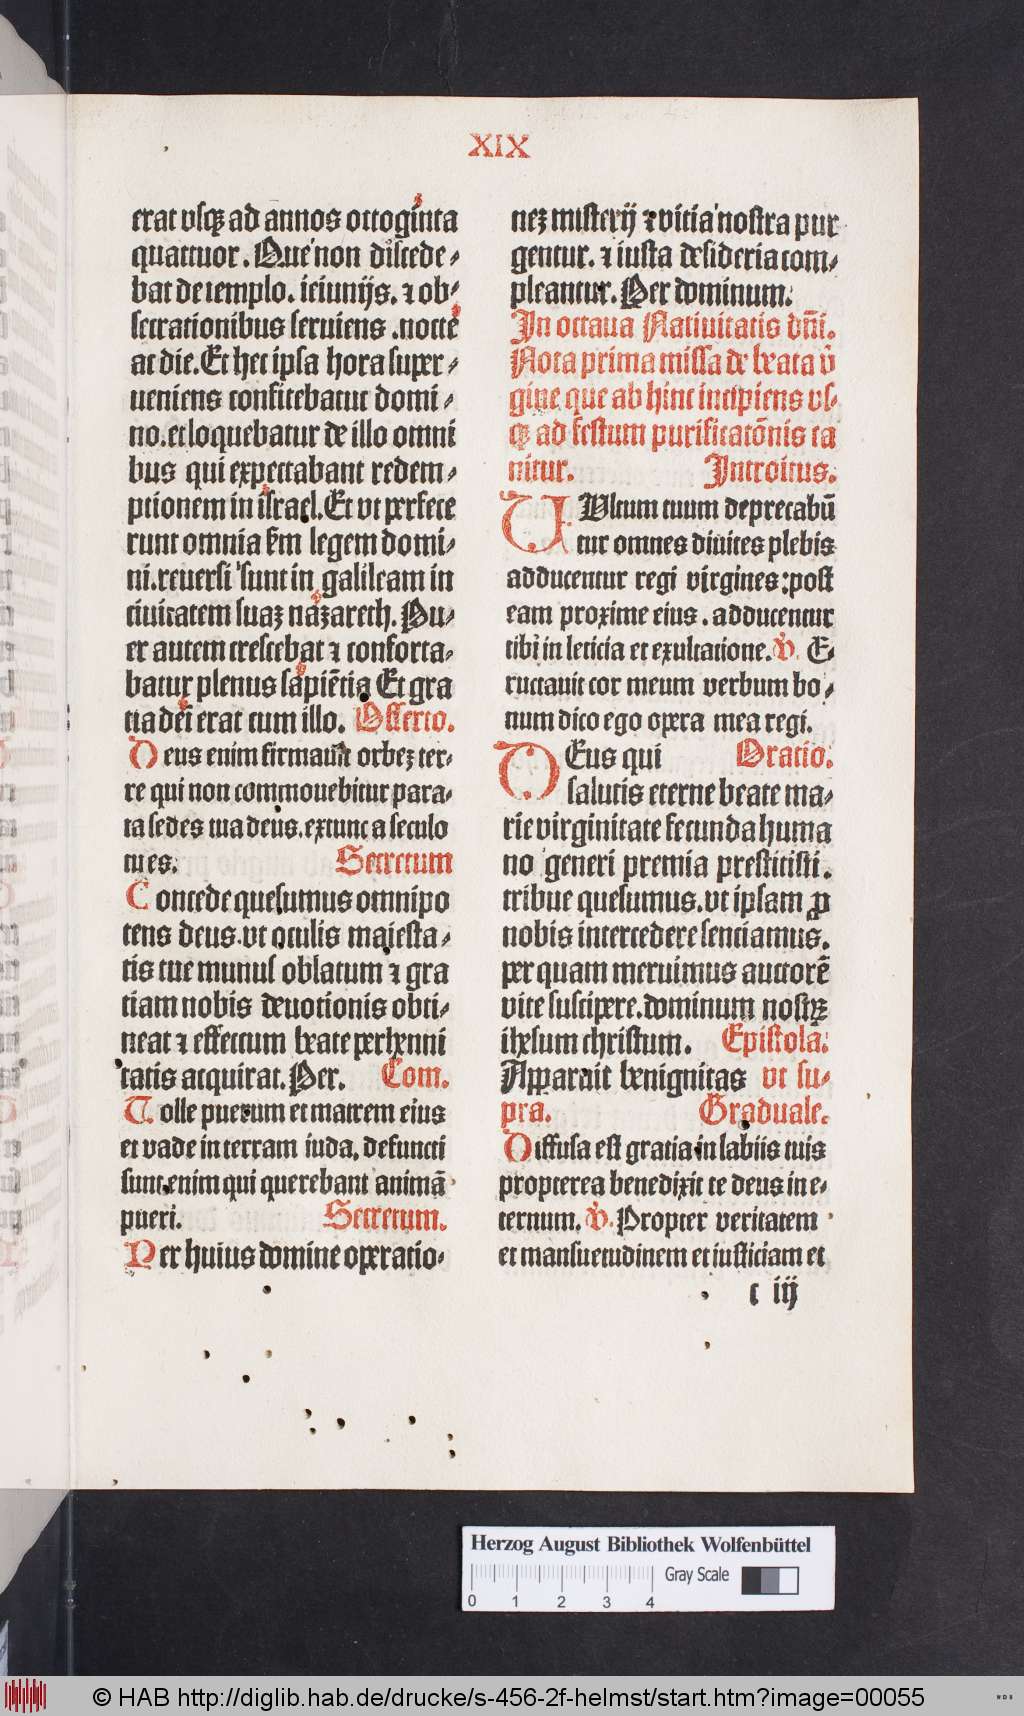 XIX
erat vsqꝫ ad annos octoginta
quattuor. Que non discede-
bat de templo. ieiunijs. ⁊ ob-
secrationibus seruiens .nocte
ac die. Et hec ipsa hora super-
ueniens confitebatur domi-
no. et loquebatur de illo omni
bus qui expectabant redem-
ptionem in israel. Et vt perfece
runt omnia scďm legem domi-
ni. reuersi sunt in galileam in
ciuitatem suaꝫ nazareth. Pu-
er autem crescebat ⁊ conforta-
batur plenus sapiētia Et gra
tia dei erat cum illo. Offerto.
Deus enim firmauit orbeꝫ ter-
re qui non commouebitur para-
ta sedes tua deus. extunc a seculo
tu es. Secretum
Concede quesumus omnipo
tens deus. vt oculis maiesta-
tis tue munus oblatum ⁊ gra
tiam nobis deuotionis obti-
neat ⁊ effectum beate perhenni
tatis acquirat. Per. Com.
Tolle puerum et matrem eius
et vade in terram iuda. defuncti
sunt enim qui querebant animā
pueri. Secretum.
Per huius domine operatio-
neꝫ misterij ⁊ vitia nostra pur
gentur. ⁊ iusta desideria com-
pleantur. Per dominum.
In octaua Natiuitatis dn̄i.
Nota prima missa de beata v̄
gine que ab hinc incipiens vs-
qꝫ ad festum purificatōnis ca
nitur. Introitus.
VUltum tuum deprecabū
tur omnes diuites plebis
adducentur regi virgines: post
eam proxime eius. adducentur
tibi in leticia et exultatione. V̇. E-
ructauit cor meum verbum bo-
num dico ego opera mea regi.
DEus qui Oratio.
salutis eterne beate ma-
rie virginitate fecunda huma
no generi premia prestitisti.
tribue quesumus. vt ipsam ꝓ
nobis intercedere sentiamus.
per quam meruimus auctorē
vite suscipere. dominum nostrꝫ
ihesum christum. Epistola.
Apparuit benignitas vt su-
pra. Graduale.
Diffusa est gratia in labiis tuis
propterea benedixit te deus in e-
ternum. V̇. Propter veritatem
et mansuetudinem et iusticiam et
c iij
Herzog August Bibliothek Wolfenbüttel
Gray Scale
0 1 2 3 4
© HAB http://diglib.hab.de/drucke/s-456-2f-helmst/start.htm?image=00055